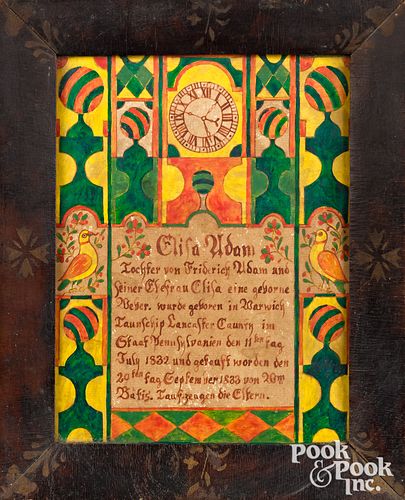 XII I II III IIII V VI VII VIII IX X XI
Elisa Adam
Tochter von Friderich Adam und
seiner Ehefrau Elisa eine geborne
Weber. wurde geboren in Warwich
Taunschip Lancaster Caunty im
Staat Pennsylvanien den 11ten tag
July 1832 und getauft worden den
29ten tag September 1833 von Wm
Batis. Taufzeugen die Eltern.
POOK
& POOK
INC.